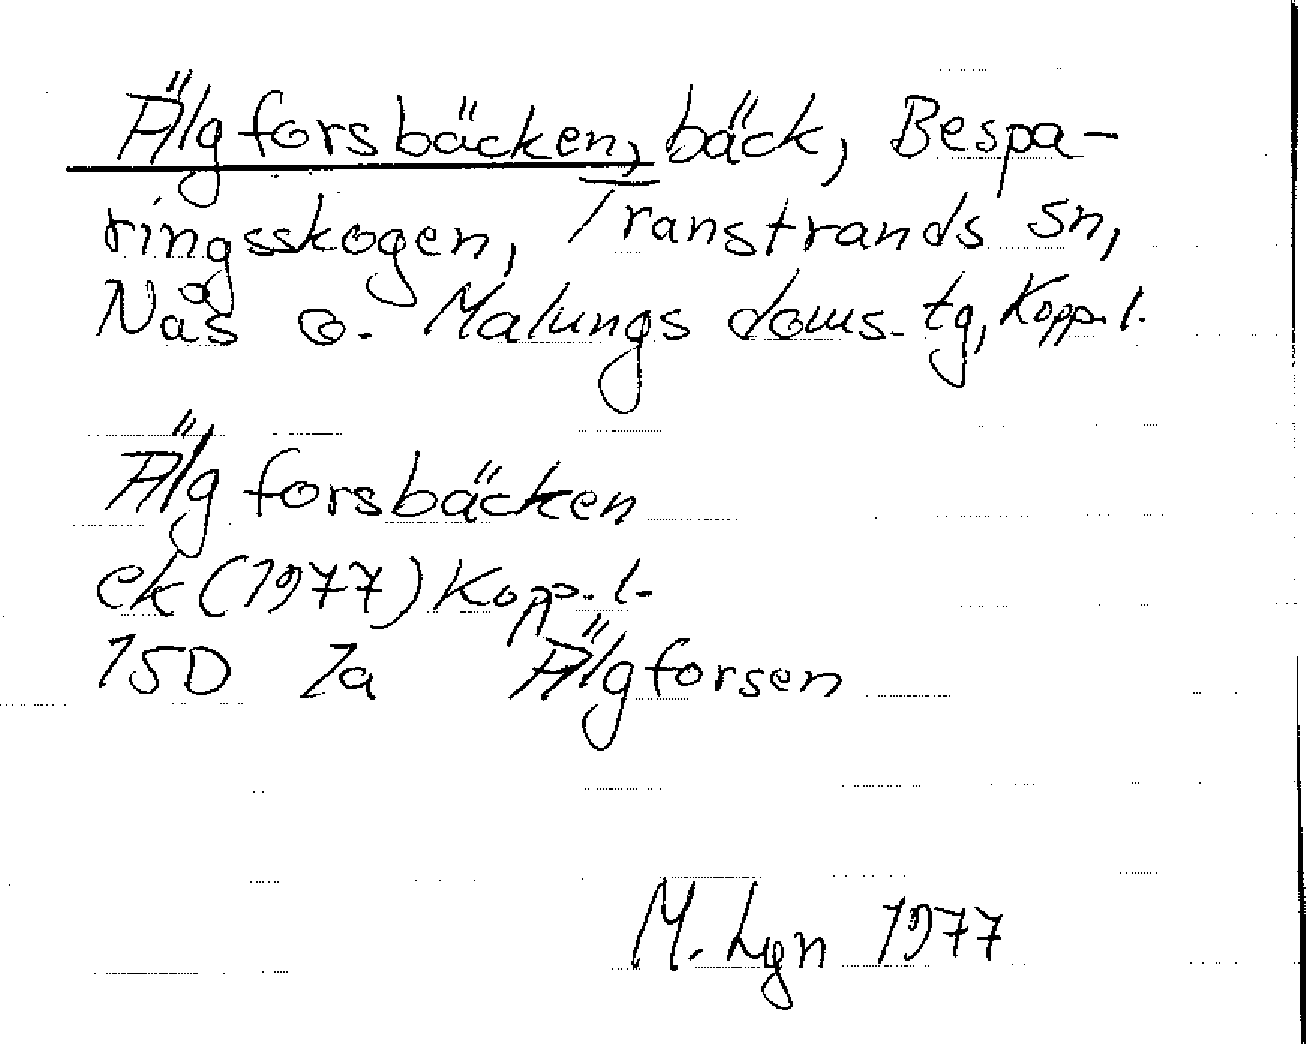 Älgforsbäcken, bäck, Bespa-
ringsskogen, Transtrands sn,
Nås o. Malungs doms. tg, Kopp. l.
Älgforsbäcken
ek (1977) Kopp. l.
15D 1a Älgforsen
M. Lyn 1977